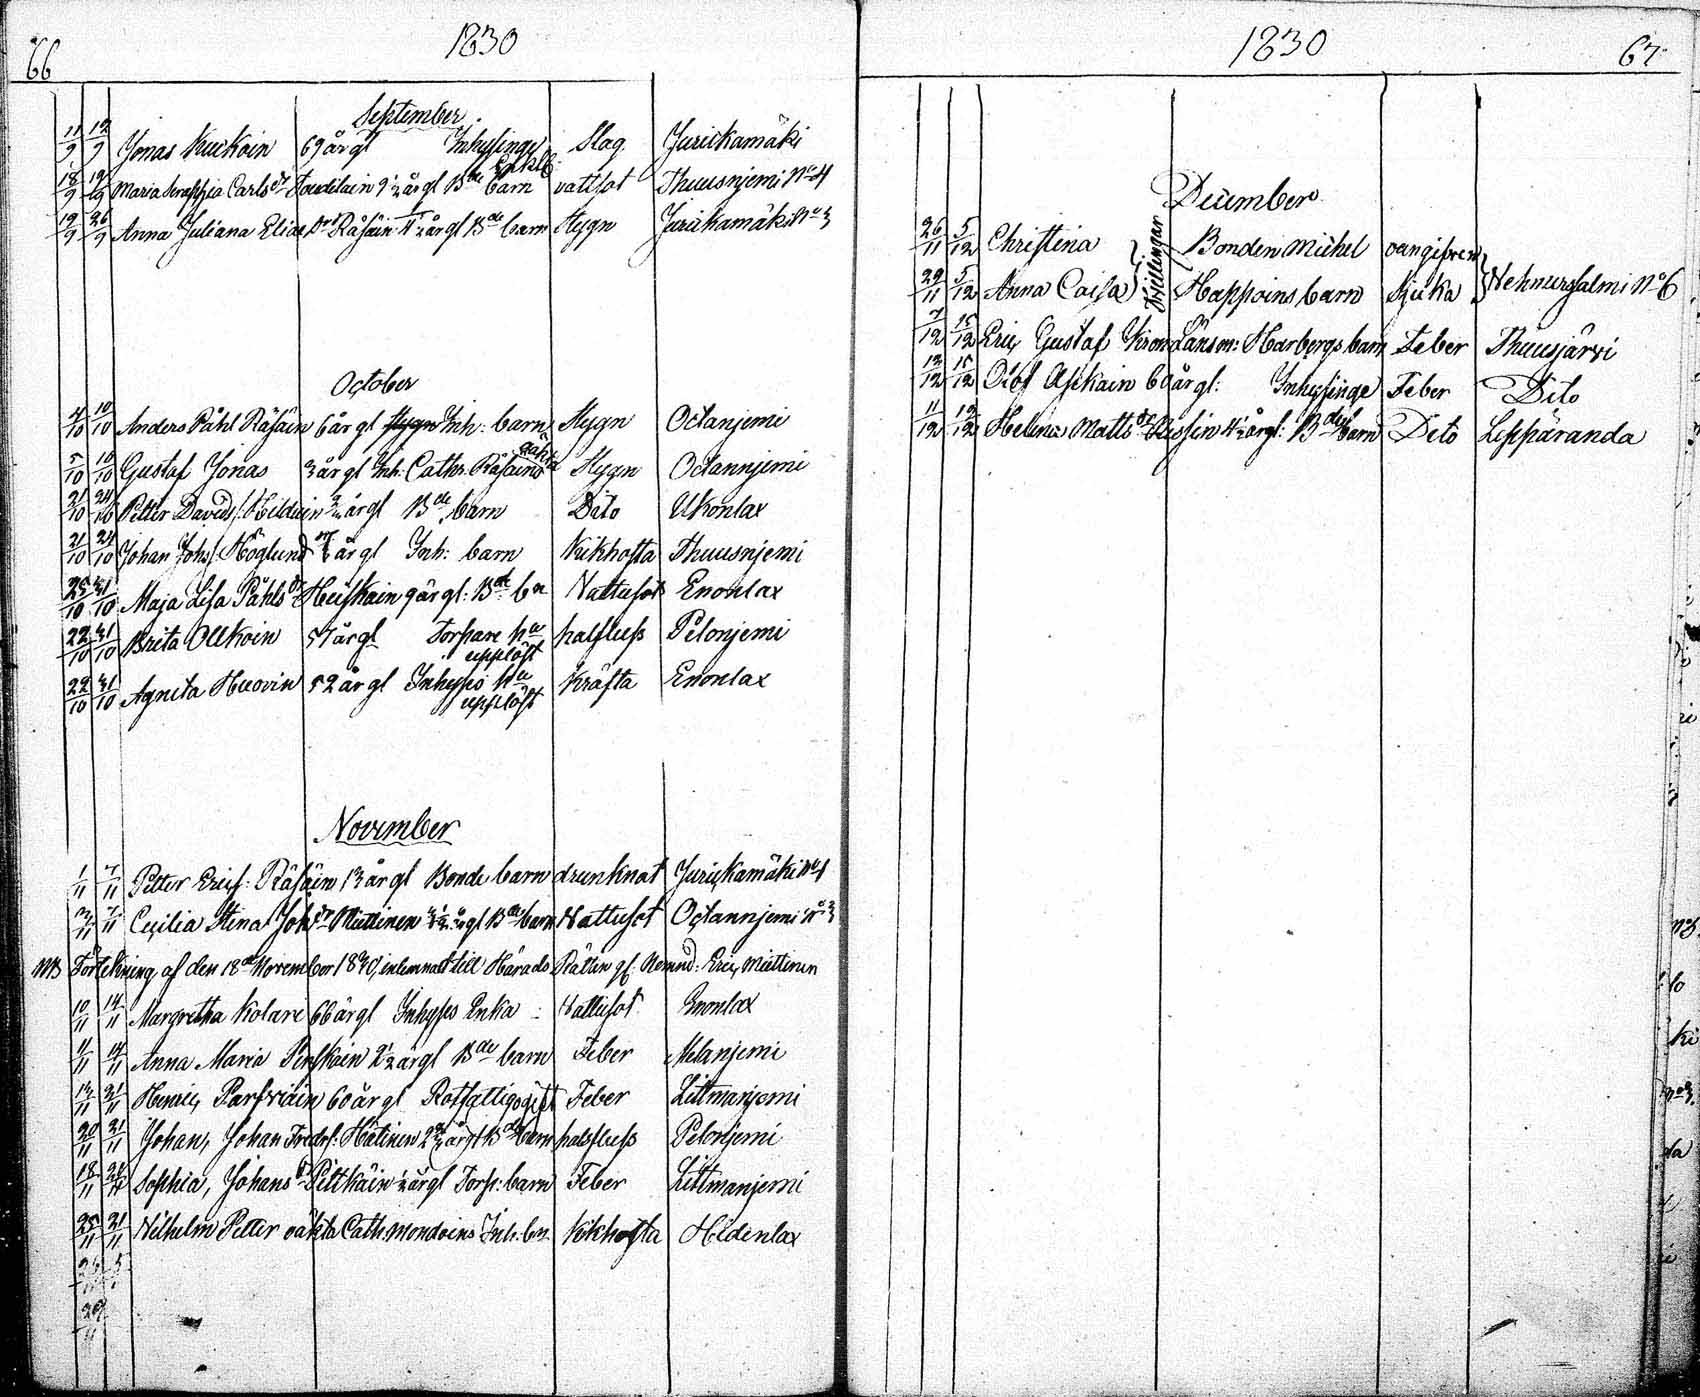 66
1830
September
11/9 12/9 Jonas Kuckoin 69 årgl Inhysinge Slag Jurickamäki
Enkl:
18/9 19/9 Maria Seraphia Carlsdr Toudilain 9½ årgl Bde barn vattsot Thuusnjemi No 4
19/9 26/9 Anna Juliana Eliædr Räsäin 4½ årgl Bde barn Stygn Jurickamäki No 3
October
4/10 10/10 Anders Påhl Räsäin 6 årgl Inh: barn Stygn Octanjemi
oäkta
5/10 10/10 Gustaf Jonas 3 årgl Inh: Cathr. Räsäins Stygn Octannjemi
21/10 24/10 Petter Davids: Hilduin årgl Bde barn Dito Ukonlax
21/10 24/10 Johan Johs: Höglund årgl Inh: barn Kikhosta Thuusnjemi
25/10 31/10 Maja Lisa Påhlsdr Heiskain 9 årgl: Bde bn Vattusot Enonlax
22/10 31/10 Brita Ollkoin 57 årgl Torpare hu halsfluss Pelonjemi
upplöst
29/10 31/10 Agneta Huovin 52 årgl Inhyses hu Kräfta Enonlax
upplöst
November
1/11 7/11 Petter Erics: Räsäin 13 årgl Bonde barn drunknat Jurickamäki No 4
3/11 7/11 Cecilia Stina Johdr Miettinen årgl Bde barn Vattusot Octannjemi No 3
NB Förtekning af den 18de November 1830, inlemnat till Härads Rätten gf. Nemnd: Eric Miettinen
10/11 14/11 Margretha Kolare 66 årgl Inhyses Enka - Vattusot Enonlax
11/11 14/11 Anna Maria Penskäin 2½ årgl Bde barn Feber Melanjemi
13/11 21/11 Henric Parfviäin 60 årgl Rotfattig ogift Feber Littmanjemi
20/11 21/11 Johan, Johan Fredrs: Hätinen årgl Bde barn halsfluss Pelonjemi
18/11 21/11 Sophia, Johansdr Pitkäin ½ årgl Torp: barn Feber Littmanjemi
25/11 21/11 Wilhelm Petter oäkta Cath: Mondoins Inh: bn Kikhosta Hidenlax
26/11 5
29/11
1830
67
December
26/11 5/12 Christina Bonden Michel oangifven
Tvillingar
29/11 5/12 Anna Caisa Happoins barn Sjuka Vehnursalmi No 6
7/12 15/12 Eric Gustaf Kron Länsm: Harbergs barn Feber Thuusjärvi
13/12 15/12 Olof Askain 60 årgl: Inhysinge Feber Dito
11/12 19/12 Helena Mattsdr Assin 4½ årgl: Bde barn Dito Leppäranda